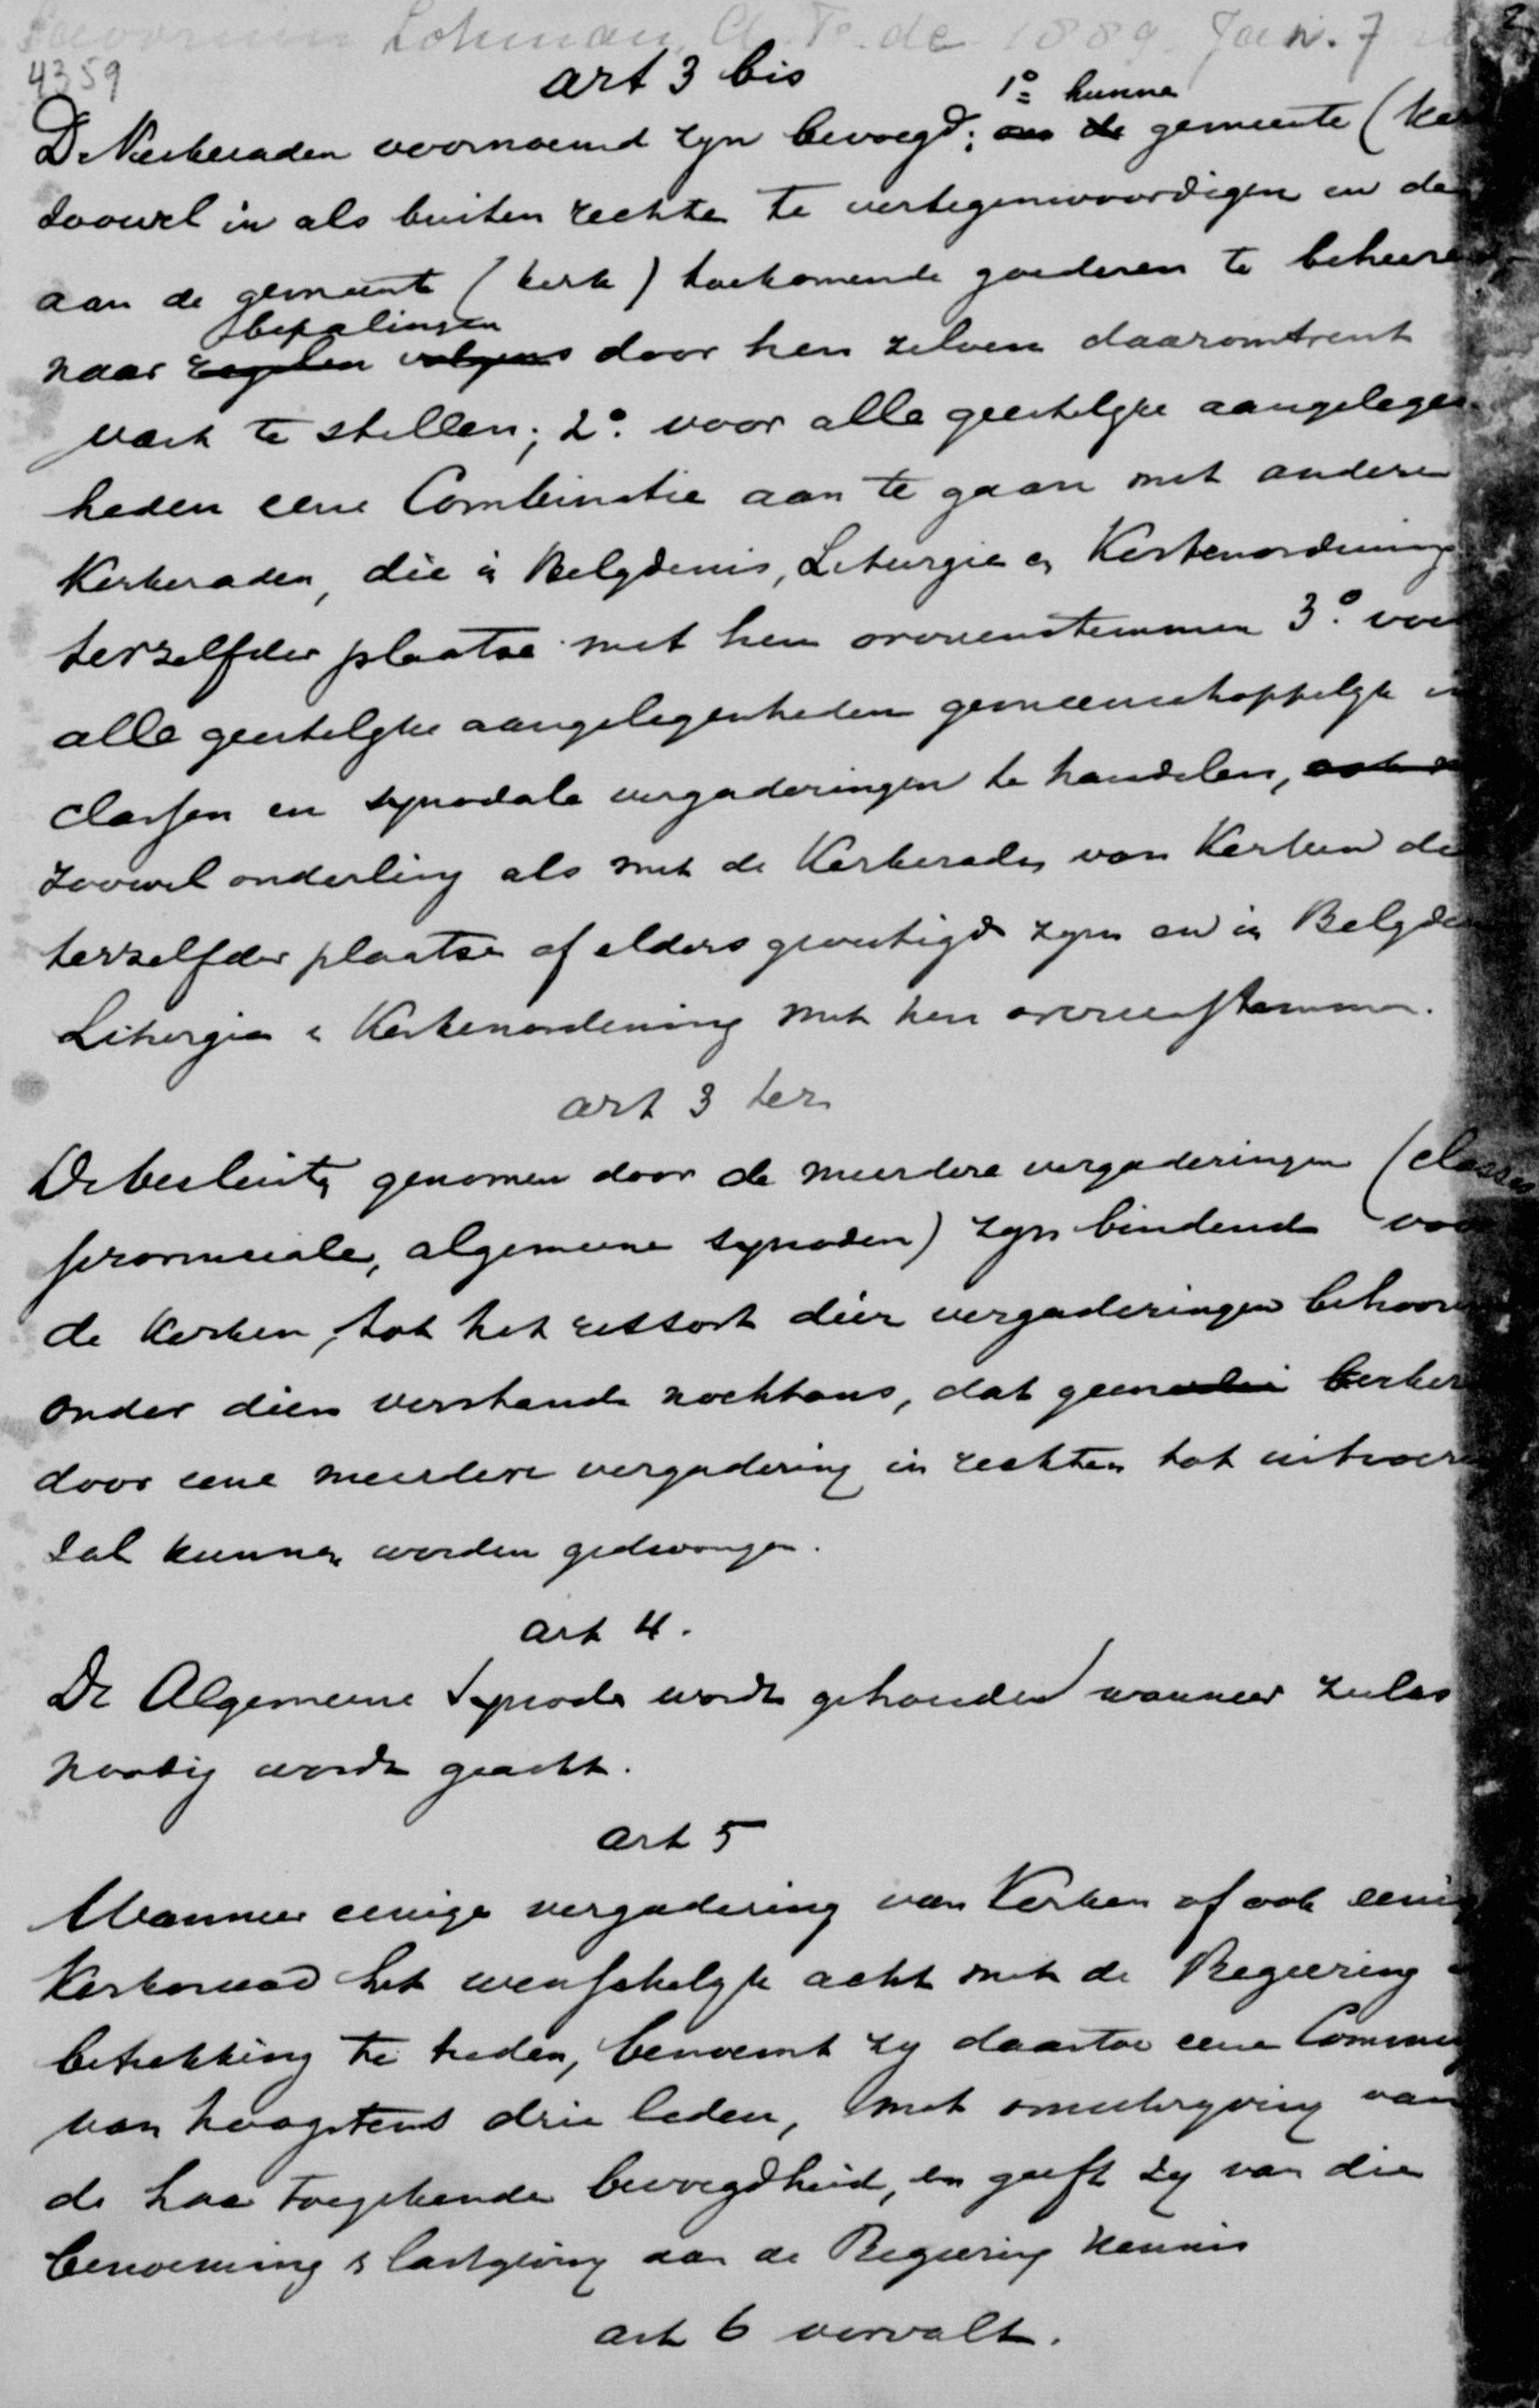 Savornin Lohman, A. F. de 1889 Jan. 7
4359
art 3 bis
1º kunne
De Kerkeraden voornoemd zyn bevoegd: de gemeente (
zoowel in als buiten rechte te vertegenwoordigen en de
aan de gemeente (kerk) toekomende goederen te beheere
bepalingen
naar regelen volgens door hen zelven daaromtrent
vast te stellen; 2º. voor alle geestelyke aangelegen
heden eene Combinatie aan te gaan met andere
Kerkeraden, die in Belydenis, Liturgie en Kerkenordening
terzelfder plaatse met hen overeenstemmen 3º. voor
alle geestelyke aangelegenheden gemeenschappelyk in
classen en synodale vergaderingen te handelen,
zoowel onderling als met de Kerkeraden van Kerken die
terzelfder plaatse of elders gevestigd zyn en in Belyde
Liturgie en Kerkenordening met hen overeenstemmen.
art 3 ter
De besluiten genomen door de meerdere vergaderingen (classes
provinciale, algemeene synoden) zyn bindend voor
de Kerken, tot het ressort dier vergaderingen behoore
onder dien verstande nochtans, dat geene kerker
door eene meerdere vergadering in rechten tot uitvoer
zal kunnen worden gedwongen.
art 4.
De Algemeene Synode wordt gehouden wanneer zulks
noodig wordt geacht.
art 5
Wanneer eenige vergadering van Kerken of ook eenig
Kerkeraad het wenschelyk acht met de Regeering
betrekking te treden, benoemt zy daartoe eene Commis
van hoogstens drie leden, met omschryving van
de haar toegekende bevoegdheid, en geeft zy van die
benoeming & lastgeving aan de Regeering kennis
art 6 vervalt.